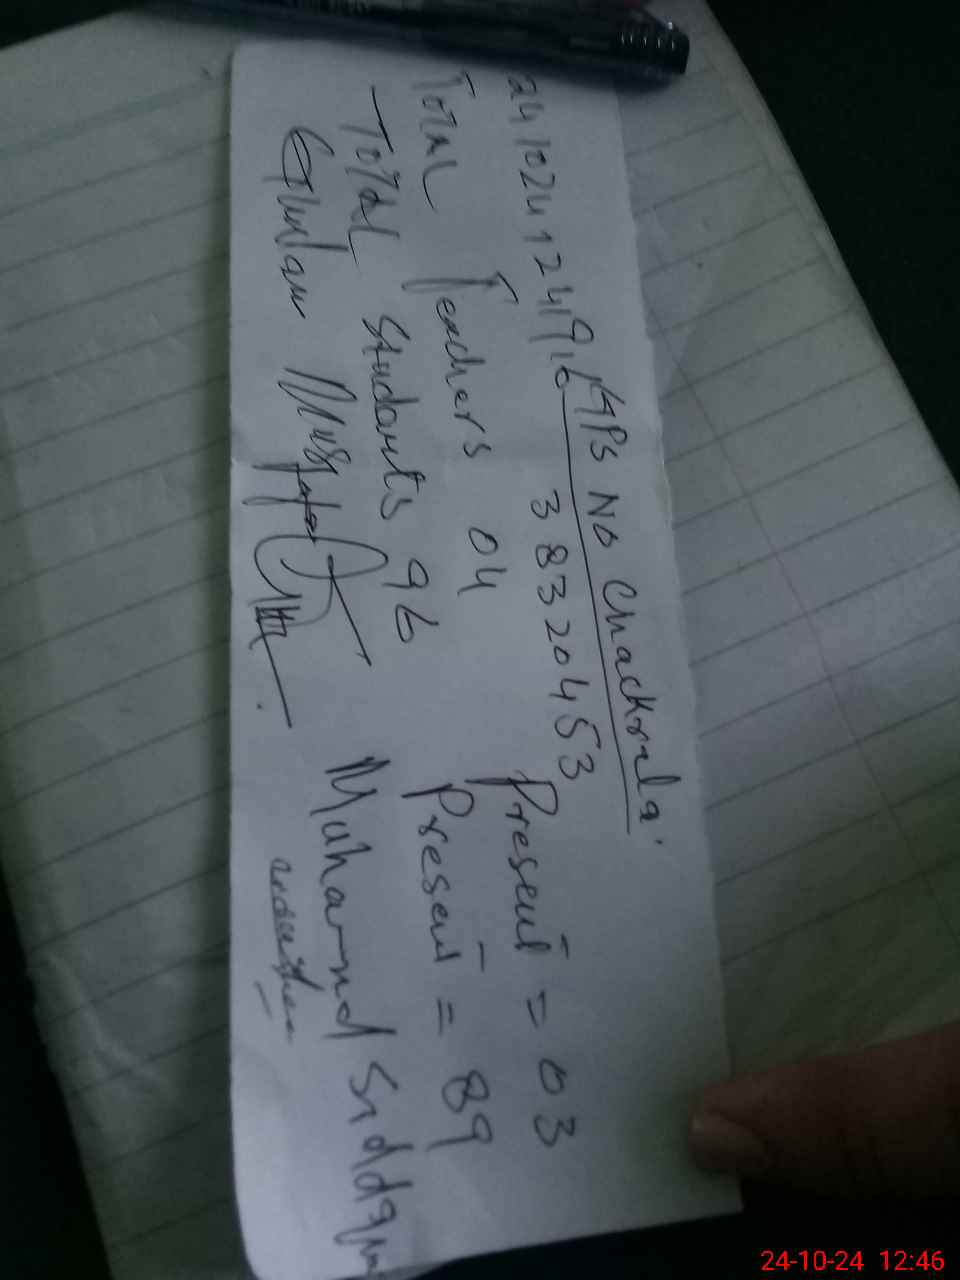 GPS No Chackrala.
2410241241916 38320453
Total Teachers 04 Present = 03
Total Students 96 Present = 89
Ghulam Mustafa Muhammad Siddq
24-10-24 12:46